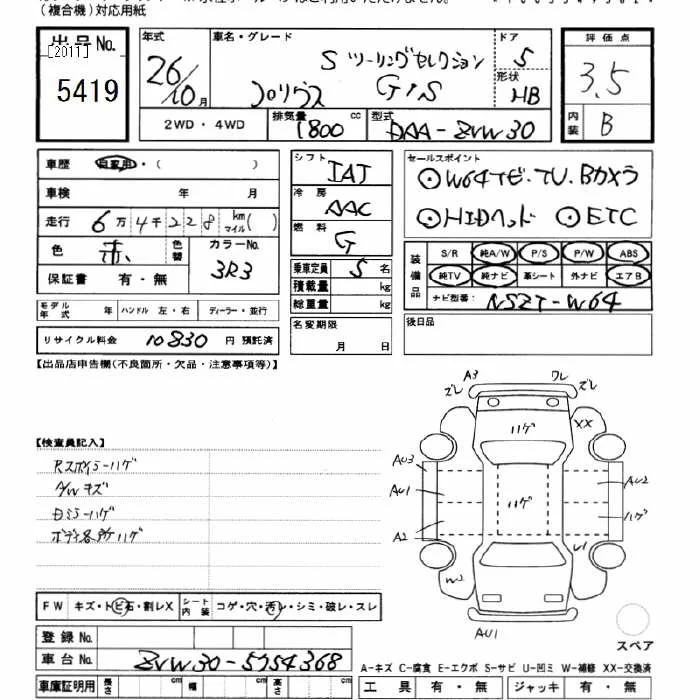 (複合機)対応用紙
出品No.
[2011]
5419
年式
26/10月
車名・グレード
S ツーリングセレクション
G's
ドア
5
形状
HB
評価点
3.5
内装
B
2WD・4WD
排気量
1800 cc
型式
DAA-ZVW30
車歴
自家用・( )
車検 年 月
走行 6万4千228 km マイル( )
色 赤 色替
カラーNo.
3R3
保証書 有・無
シフト
IAT
冷房
AAC
燃料
G
乗車定員 5 名
積載量 kg
総重量 kg
セールスポイント
W64ナビ.TV.Bカメラ
HIDヘッド ETC
装備品
S/R 純A/W P/S P/W ABS
純TV 純ナビ 革シート 外ナビ エアB
ナビ型番: NSZT-W64
モデル年式 年 ハンドル 左・右 ディーラー・並行
リサイクル料金 10830 円 預託済
名変期限
月 日
後日品
【出品店申告欄(不良箇所・欠品・注意事項等)】
【検査員記入】
Rスポイラーハゲ
A/Wキズ
Dミラーハゲ
ボディ各所ハゲ
A3 ズレ
ワレ ズレ
ハゲ
XX
AU3
AU1
A2
ハゲ
AU2
ハゲ
U1
W2
AU1
スペア
FW キズ・トビ石・割レX
シート内装 コゲ・穴・汚レ・シミ・破レ・スレ
登録No.
車台No. ZVW30-5754368
車庫証明用 長さ cm 幅 cm 高さ cm
A-キズ C-腐食 E-エクボ S-サビ U-凹ミ W-補修 XX-交換済
工具 有・無 ジャッキ 有・無